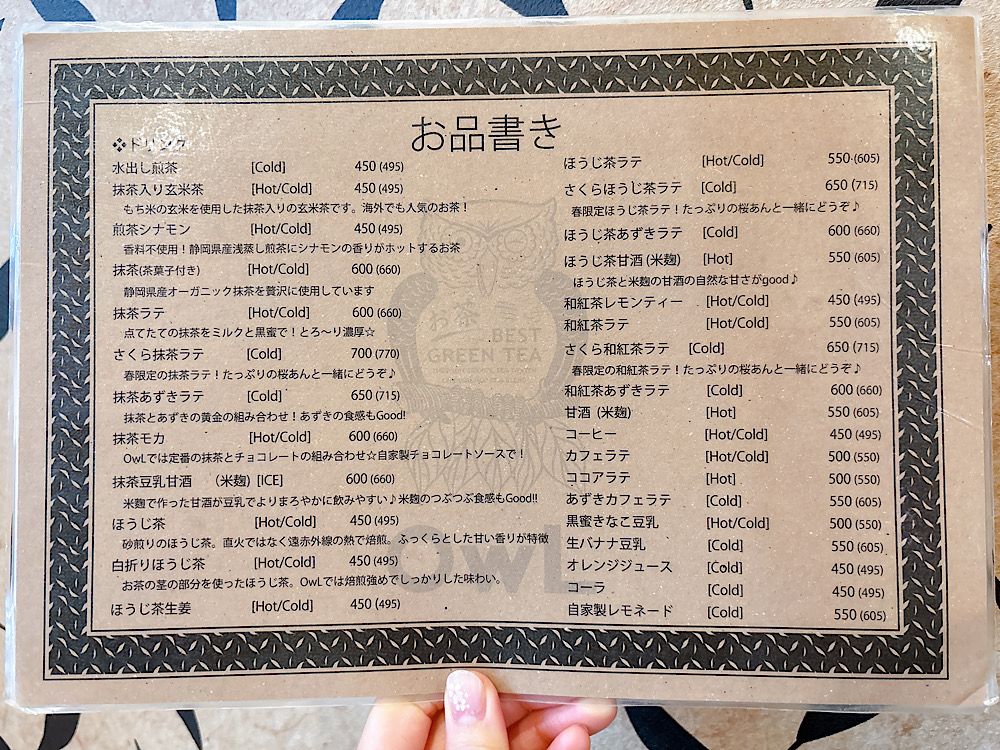 お品書き
❖ドリンク
水出し煎茶 [Cold] 450 (495)
抹茶入り玄米茶 [Hot/Cold] 450 (495)
もち米の玄米を使用した抹茶入りの玄米茶です。海外でも人気のお茶！
煎茶シナモン [Hot/Cold] 450 (495)
香料不使用！静岡県産浅蒸し煎茶にシナモンの香りがホットするお茶
抹茶(茶菓子付き) [Hot/Cold] 600 (660)
静岡県産オーガニック抹茶を贅沢に使用しています
抹茶ラテ [Hot/Cold] 600 (660)
点てたての抹茶をミルクと黒蜜で！とろ〜り濃厚☆
さくら抹茶ラテ [Cold] 700 (770)
春限定の抹茶ラテ！たっぷりの桜あんと一緒にどうぞ♪
抹茶あずきラテ [Cold] 650 (715)
抹茶とあずきの黄金の組み合わせ！あずきの食感もGood!
抹茶モカ [Hot/Cold] 600 (660)
OwLでは定番の抹茶とチョコレートの組み合わせ☆自家製チョコレートソースで！
抹茶豆乳甘酒 （米麹) [ICE] 600 (660)
米麹で作った甘酒が豆乳でよりまろやかに飲みやすい♪米麹のつぶつぶ食感もGood!!
ほうじ茶 [Hot/Cold] 450 (495)
砂煎りのほうじ茶。直火ではなく遠赤外線の熱で焙煎。ふっくらとした甘い香りが特徴
白折りほうじ茶 [Hot/Cold] 450 (495)
お茶の茎の部分を使ったほうじ茶。OwLでは焙煎強めでしっかりした味わい。
ほうじ茶生姜 [Hot/Cold] 450 (495)
ほうじ茶ラテ [Hot/Cold] 550 (605)
さくらほうじ茶ラテ [Cold] 650 (715)
春限定ほうじ茶ラテ！たっぷりの桜あんと一緒にどうぞ♪
ほうじ茶あずきラテ [Cold] 600 (660)
ほうじ茶甘酒 (米麹) [Hot] 550 (605)
ほうじ茶と米麹の甘酒の自然な甘さがgood♪
和紅茶レモンティー [Hot/Cold] 450 (495)
和紅茶ラテ [Hot/Cold] 550 (605)
さくら和紅茶ラテ [Cold] 650 (715)
春限定の和紅茶ラテ！たっぷりの桜あんと一緒にどうぞ♪
和紅茶あずきラテ [Cold] 600 (660)
甘酒 (米麹) [Hot] 550 (605)
コーヒー [Hot/Cold] 450 (495)
カフェラテ [Hot/Cold] 500 (550)
ココアラテ [Hot] 500 (550)
あずきカフェラテ [Cold] 550 (605)
黒蜜きなこ豆乳 [Hot/Cold] 500 (550)
生バナナ豆乳 [Cold] 550 (605)
オレンジジュース [Cold] 450 (495)
コーラ [Cold] 450 (495)
自家製レモネード [Cold] 550 (605)
お茶
BEST
GREEN TEA
OwL